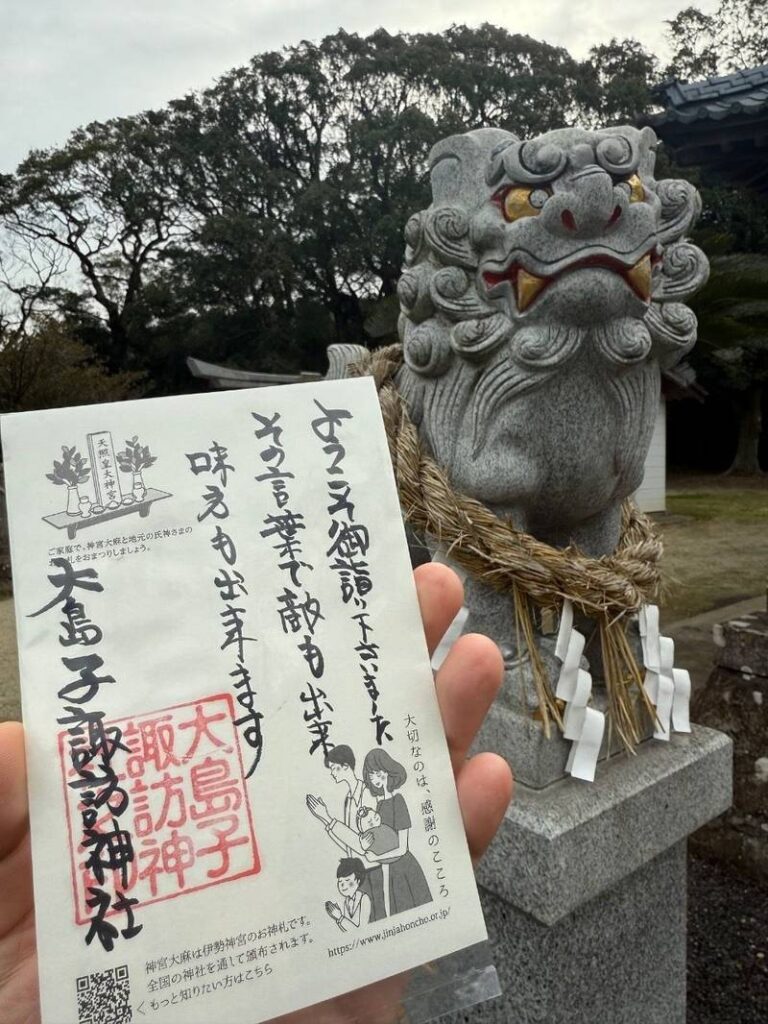 天照皇大神宮
ご家庭で、神宮大麻と地元の氏神さまの
札をおまつりしましょう。
ようこそ御詣り下さいました
その言葉で敵も出来
味方も出来ます
大島子諏訪神社
大島子
諏訪神
大切なのは、感謝のこころ
https://www.jinjahoncho.or.jp/
神宮大麻は伊勢神宮のお神札です。
全国の神社を通して頒布されます。
くもっと知りたい方はこちら